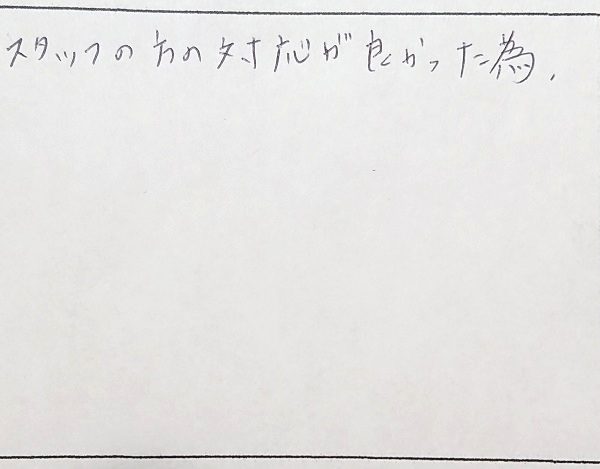 スタッフの方の対応が良かった為.